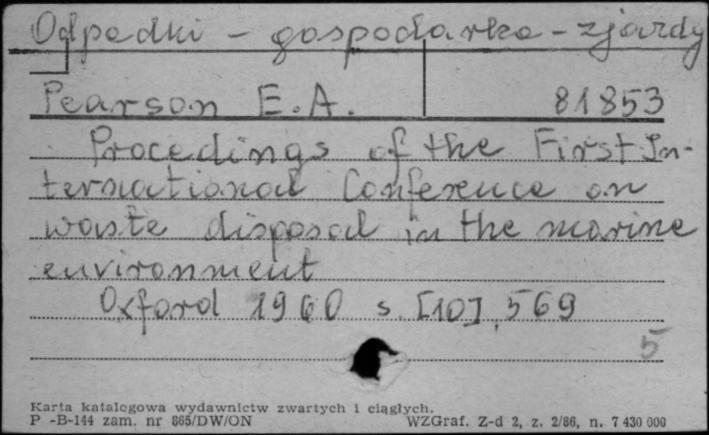 Odpadki - gospodarka - zjazdy
Pearson E.A. 81853
Procedings of the First In-
ternational Conference on
waste disposal in the marine
environment
Oxford 1960 s. [10], 569
5
Karta katalogowa wydawnictw zwartych i ciągłych.
P -B-144 zam. nr 865/DW/ON WZGraf. Z-d 2, z. 2/86, n. 7 430 000